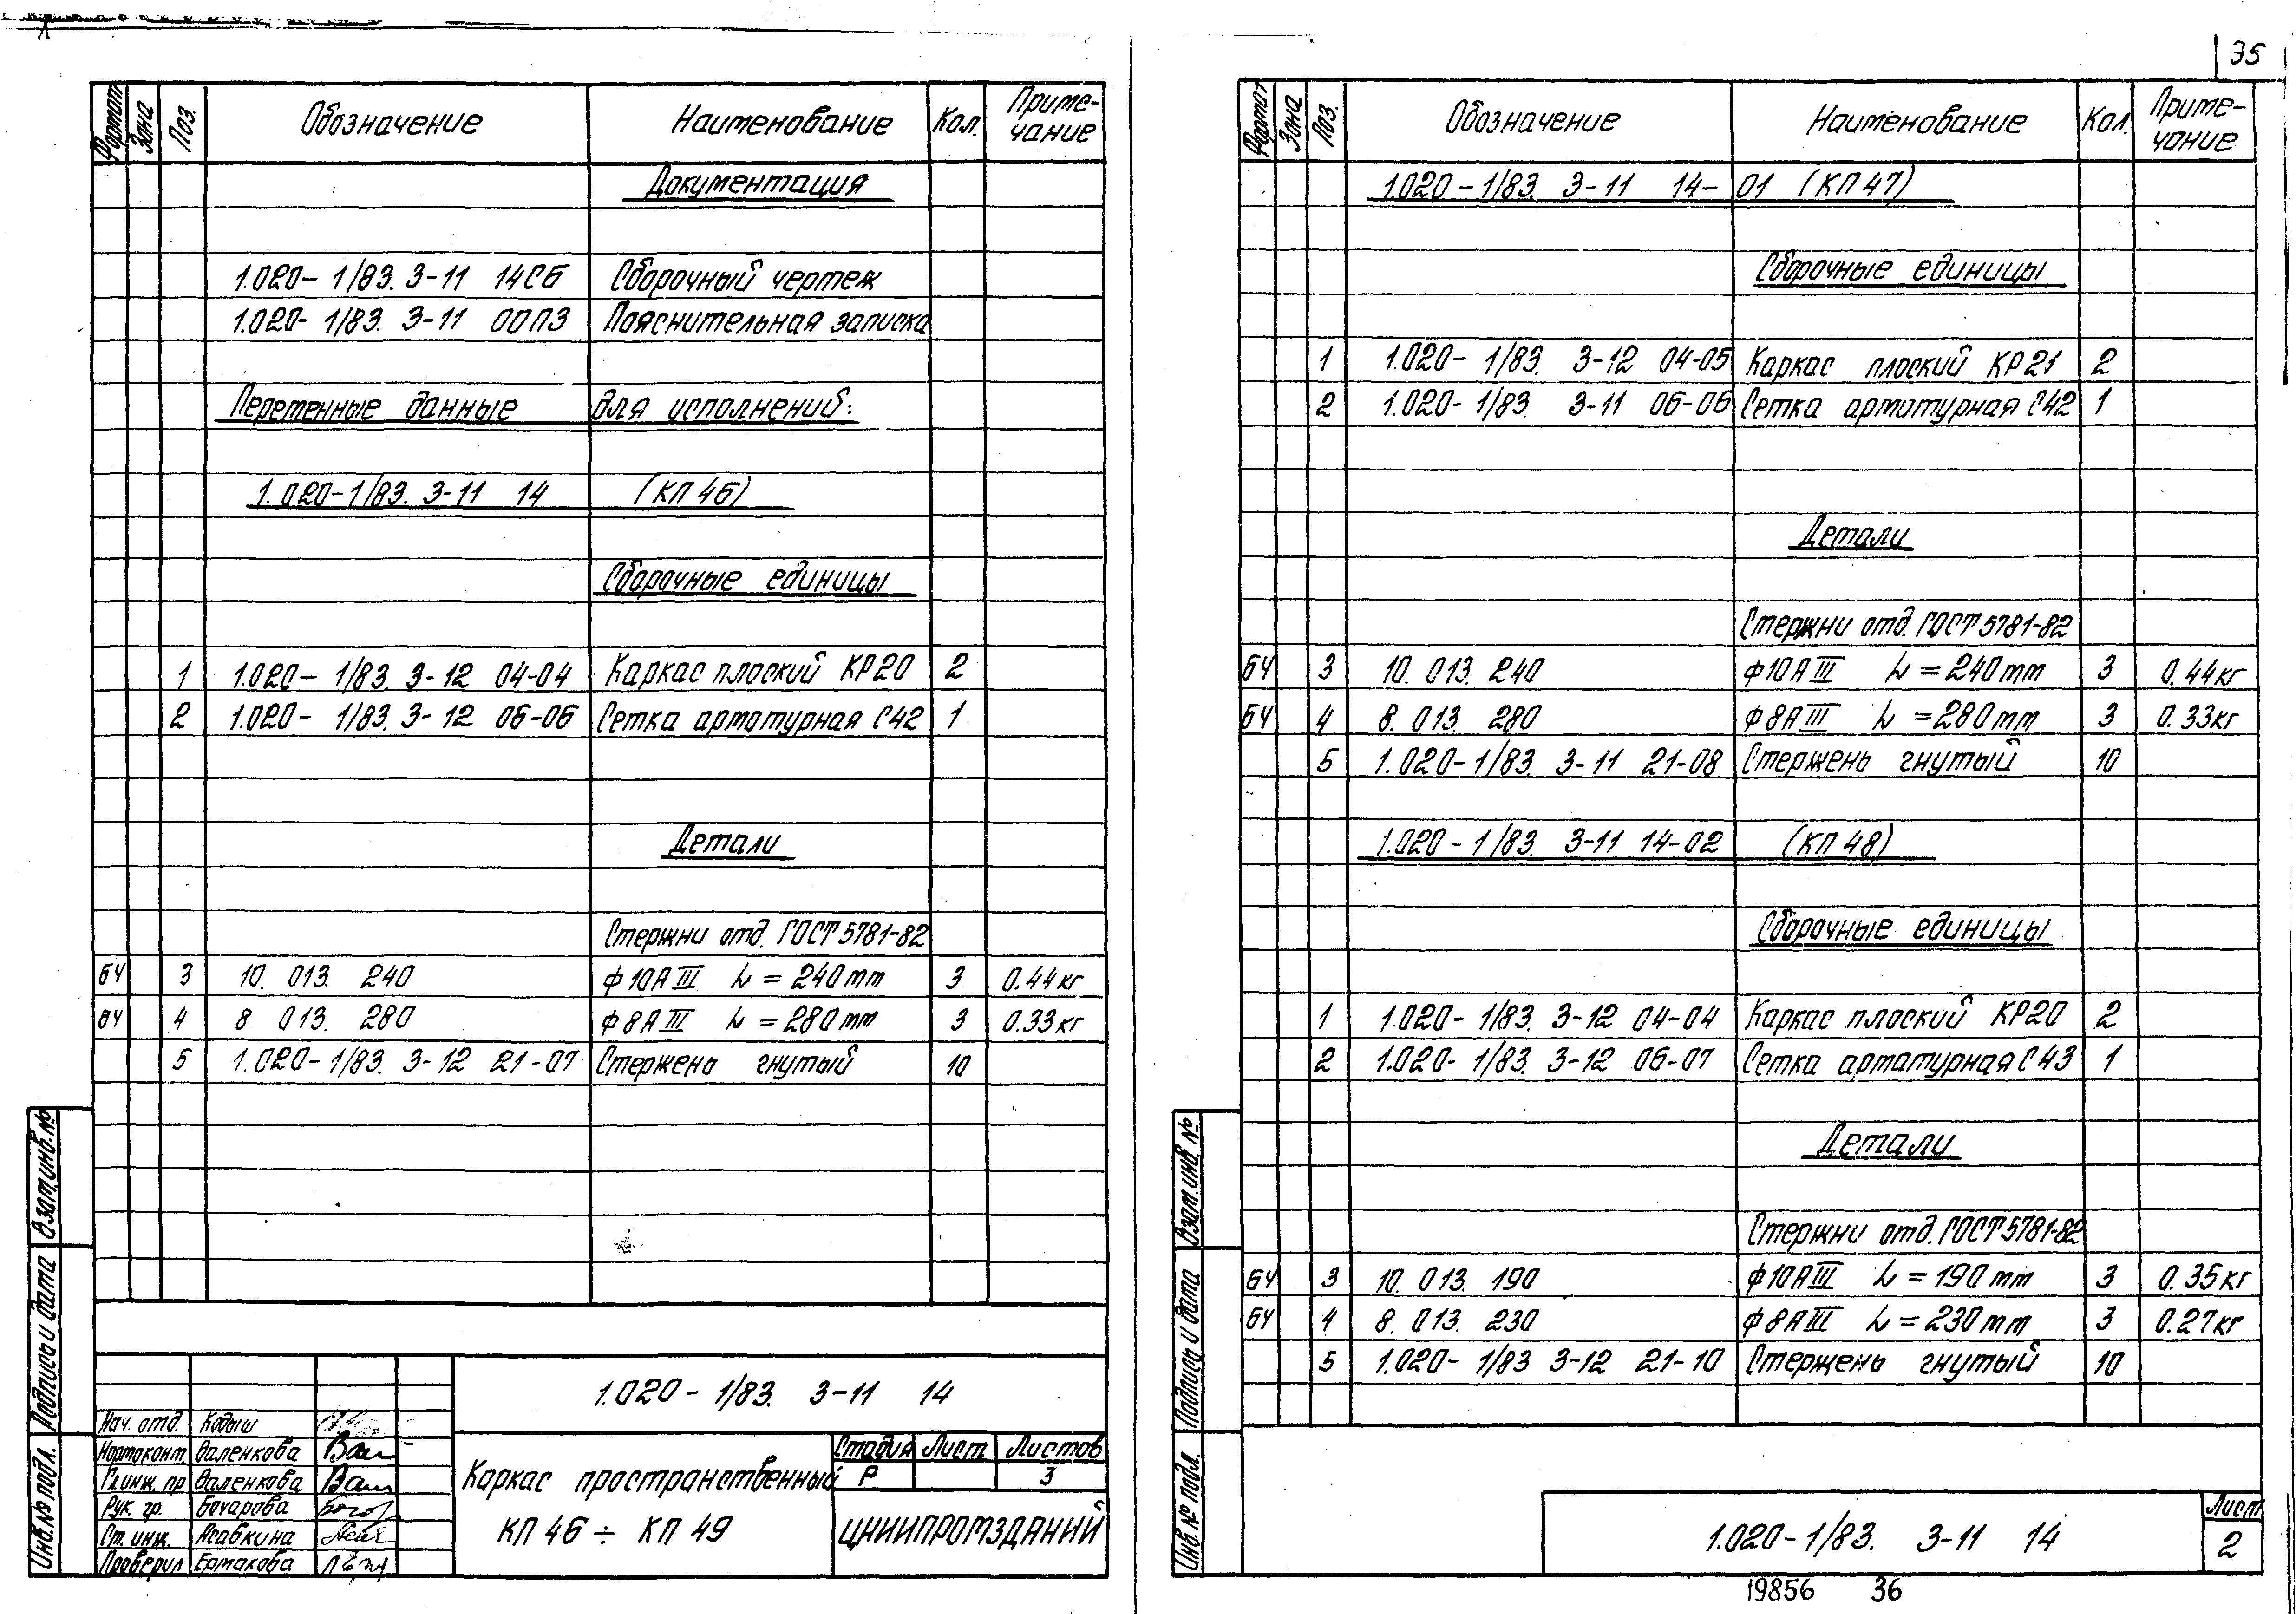 35
Формат Зона Поз. Обозначение Наименование Кол. Приме-
чание
Документация
1.020-1/83. 3-11 14СБ Сборочный чертеж
1.020-1/83. 3-11 00ПЗ Пояснительная записка
Переменные данные для исполнений:
1.020-1/83. 3-11 14 (КП 46)
Сборочные единицы
1 1.020-1/83. 3-12 04-04 Каркас плоский КР20 2
2 1.020-1/83. 3-12 06-06 Сетка арматурная С42 1
Детали
Стержни отд. ГОСТ 5781-82
БЧ 3 10. 013. 240 ф10АIII L = 240мм 3 0.44кг
БЧ 4 8. 013. 280 ф8АIII L = 280мм 3 0.33кг
5 1.020-1/83. 3-12 21-07 Стержень гнутый 10
Взам.инв.№
Подпись и дата
Инв.№ подл.
Нач. отд. Кодыш
Нормоконт. Валенкова
Гл.инж. пр Валенкова
Рук. гр. Бочарова
Ст. инж. Асавкина
Проверил Ермакова
1.020-1/83. 3-11 14
Каркас пространственный
КП 46 ÷ КП 49
Стадия Лист Листов
Р 3
ЦНИИПРОМЗДАНИЙ
Формат Зона Поз. Обозначение Наименование Кол. Приме-
чание
1.020-1/83. 3-11 14-01 (КП 47)
Сборочные единицы
1 1.020-1/83. 3-12 04-05 Каркас плоский КР21 2
2 1.020-1/83. 3-11 06-06 Сетка арматурная С42 1
Детали
Стержни отд. ГОСТ 5781-82
БЧ 3 10. 013. 240 ф10АIII L = 240мм 3 0.44кг
БЧ 4 8. 013. 280 ф8АIII L = 280мм 3 0.33кг
5 1.020-1/83. 3-11 21-08 Стержень гнутый 10
1.020-1/83. 3-11 14-02 (КП 48)
Сборочные единицы
1 1.020-1/83. 3-12 04-04 Каркас плоский КР20 2
2 1.020-1/83. 3-12 06-07 Сетка арматурная С43 1
Детали
Стержни отд. ГОСТ 5781-82
БЧ 3 10. 013. 190 ф10АIII L = 190мм 3 0.35кг
БЧ 4 8. 013. 230 ф8АIII L = 230мм 3 0.27кг
5 1.020-1/83 3-12 21-10 Стержень гнутый 10
Взам.инв.№
Подпись и дата
Инв.№ подл.
1.020-1/83. 3-11 14
Лист
2
19856 36